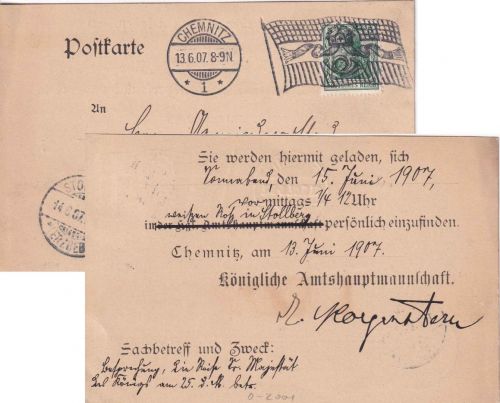 Postkarte
CHEMNITZ
13.6.07. 8-9N
* 1 *
An
STO
14.6.07
ERZGEB
Sie werden hiermit geladen, sich
Sonnabend, den 15. Juni 1907,
vormittags 1/4 12 Uhr
weißen Roß in Stollberg
in der Kgl. Amtshauptmannschaft persönlich einzufinden.
Chemnitz, am 13. Juni 1907.
Königliche Amtshauptmannschaft.
Morgenstern
Sachbetreff und Zweck:
Besprechung, die Reise Sr. Majestät
des Königs am 25. d. M. betr.
0-2001